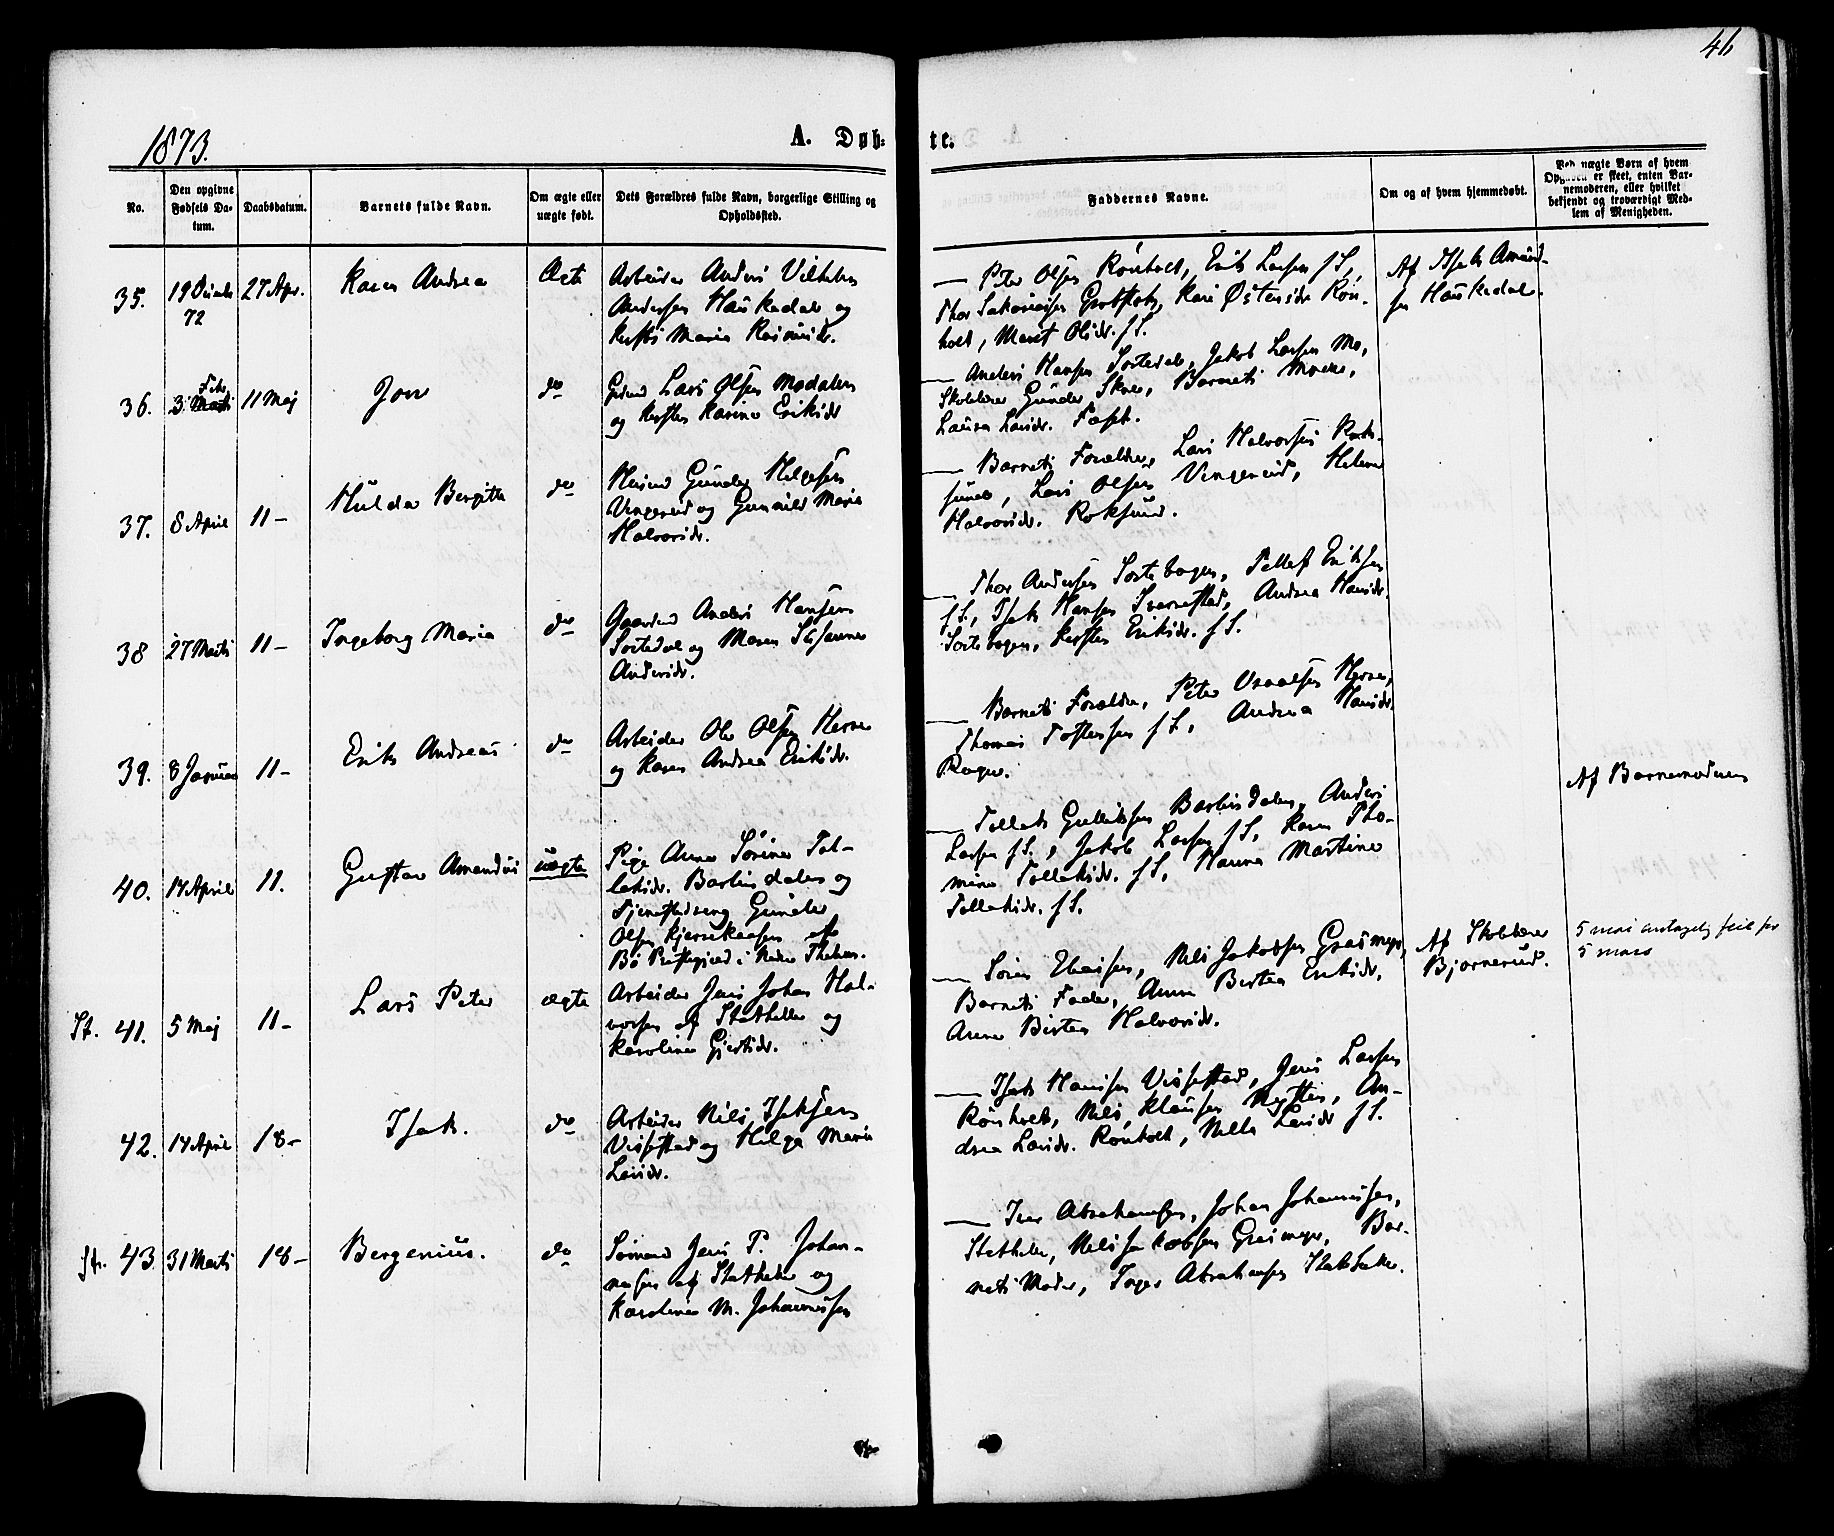 46
1873.
A. Døb-
te.
No.
Den opgivne Fødsels Datum.
Daabsdatum.
Barnets fulde Navn.
Om ægte eller uægte født.
Dets Forældres fulde Navn, borgerlige Stilling og Opholdssted.
Faddernes Navne.
Om og af hvem hjemmedøbt.
Ved uægte Børn af hvem Opgaven er skeet, enten Barnemoderen, eller hvilket bekjendt og troværdigt Medlem af Menigheden.
35.
27 Apr.
72
Karen Andrea
Ægte
Arbeider Anders Vilhelm
Andersen Haukedal og
Maria
Peter Olsen Rønholt, Erik Larsen f S.,
Thor Kari Østensdr. Røn-
holt, Maret Olsdr. f S.
Af Isak Amund-
sen Haukedal.
36.
3 Marti
Febr.
11 Maj
Jon
do
Lars Olsen Modalen
og Kirsten Karine Eriksdr
Anders Hansen Sortedal, Jakob Larsen Mo,
Skolelærer Gunder Barnets
Laura Larsdr.
37.
8 April
11 –
Hulda Bergitte
do
Husmd Gunder Helgesen
Vingereid og Gunnild Marie
Halvorsdr.
Barnets Forældre, Lars Halvorsen Rok-
sund, Lars Olsen Vingereid, Helene
Halvorsdr. Roksund.
38
27 Marti
11 –
Ingeborg Maria
do
Gaardmd Anders Hansen
Sortedal og Maren
Andersdr.
Thor Andersen Sortebogen, Tellef Eriksen
f S., Isak Hansen Andrea Hansdr.
Sortebogen, Kirsten Eriksdr. f S.
39.
8 Januar
11 –
Erik Andreas
do
Arbeider Ole Olsen Herre
og Karen Andrea Eriksdr.
Barnets Forældre, Peter Herre,
Thomas Toftensen f S., Andrea Hansdr.
40.
17 April
11.
Gustav Amandus
uægte
Pige Anne Sørine Tol-
laksdr. Barlindalen og
Gunder
Olsen Kjerrekaasen af
Bø Præstegjeld i
Tollak Gulliksen Barlindalen, Anders
Larsen f S., Jakob Larsen f S., Karen Tho-
mine Tollaksdr. f S., Hanna Martine
Tollaksdr. f S.
Af Barnemoderen
St.
41.
5 Maj
11 –
Lars Peter
ægte
Arbeider Jens Johan Hal-
vorsen af Stathelle og
Karoline Gjertsdr.
Søren Eliassen, Nels Jakobsen Grasmyr,
Barnets Fader, Anne Birtea Eriksdr.,
Anne Birtea Halvorsdr.
Af Skolelærer
Bjørnerud.
5 mai antagelig feil for
5 mars
42.
17 April
18 –
Isak.
do
Arbeider Nils Isaksen
Vissestad og Helga Maria
Larsdr.
Isak Hansen Vissestad, Jens Larsen
Rønholt, Nils Klausen An-
drea Larsdr. Rønholt, Nella Larsdr f S.
St.
43
31 Marti
18 –
Bergenius.
do
Sømand Jens P. Johan-
nesen af Stathelle og
Karoline M. Johannesen
Iver Abrahamsen, Johan Johannesen,
Stathelle, Nels Jakobsen Grasmyr, Bar-
nets Moder, Inger Abrahamsen Stathelle.